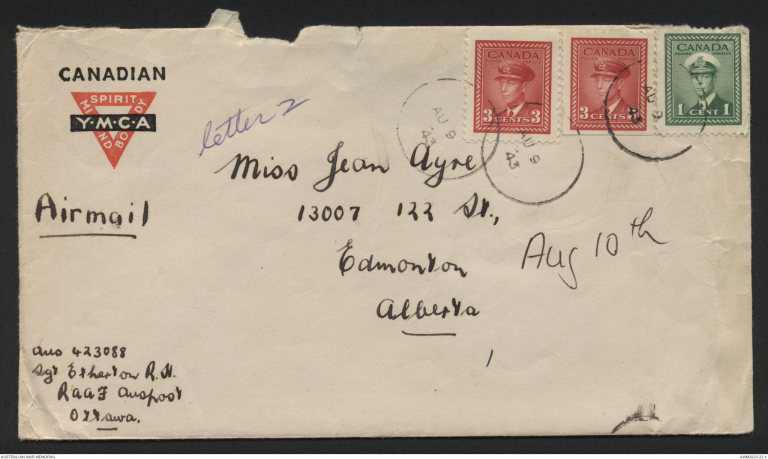 CANADIAN
SPIRIT
MIND
BODY
Y·M·C·A
letter 2
CANADA
3 CENTS 3
CANADA
3 CENTS 3
CANADA
1 CENT 1
AU 9
43
AU 9
43
AU 9
43
Miss Jean Ayre
13007 122 St.,
Edmonton
Alberta
Airmail
Aug 10th
Aus 423088
Sgt Etherton R.H.
RAAF Auspost
Ottawa.
AUSTRALIAN WAR MEMORIAL